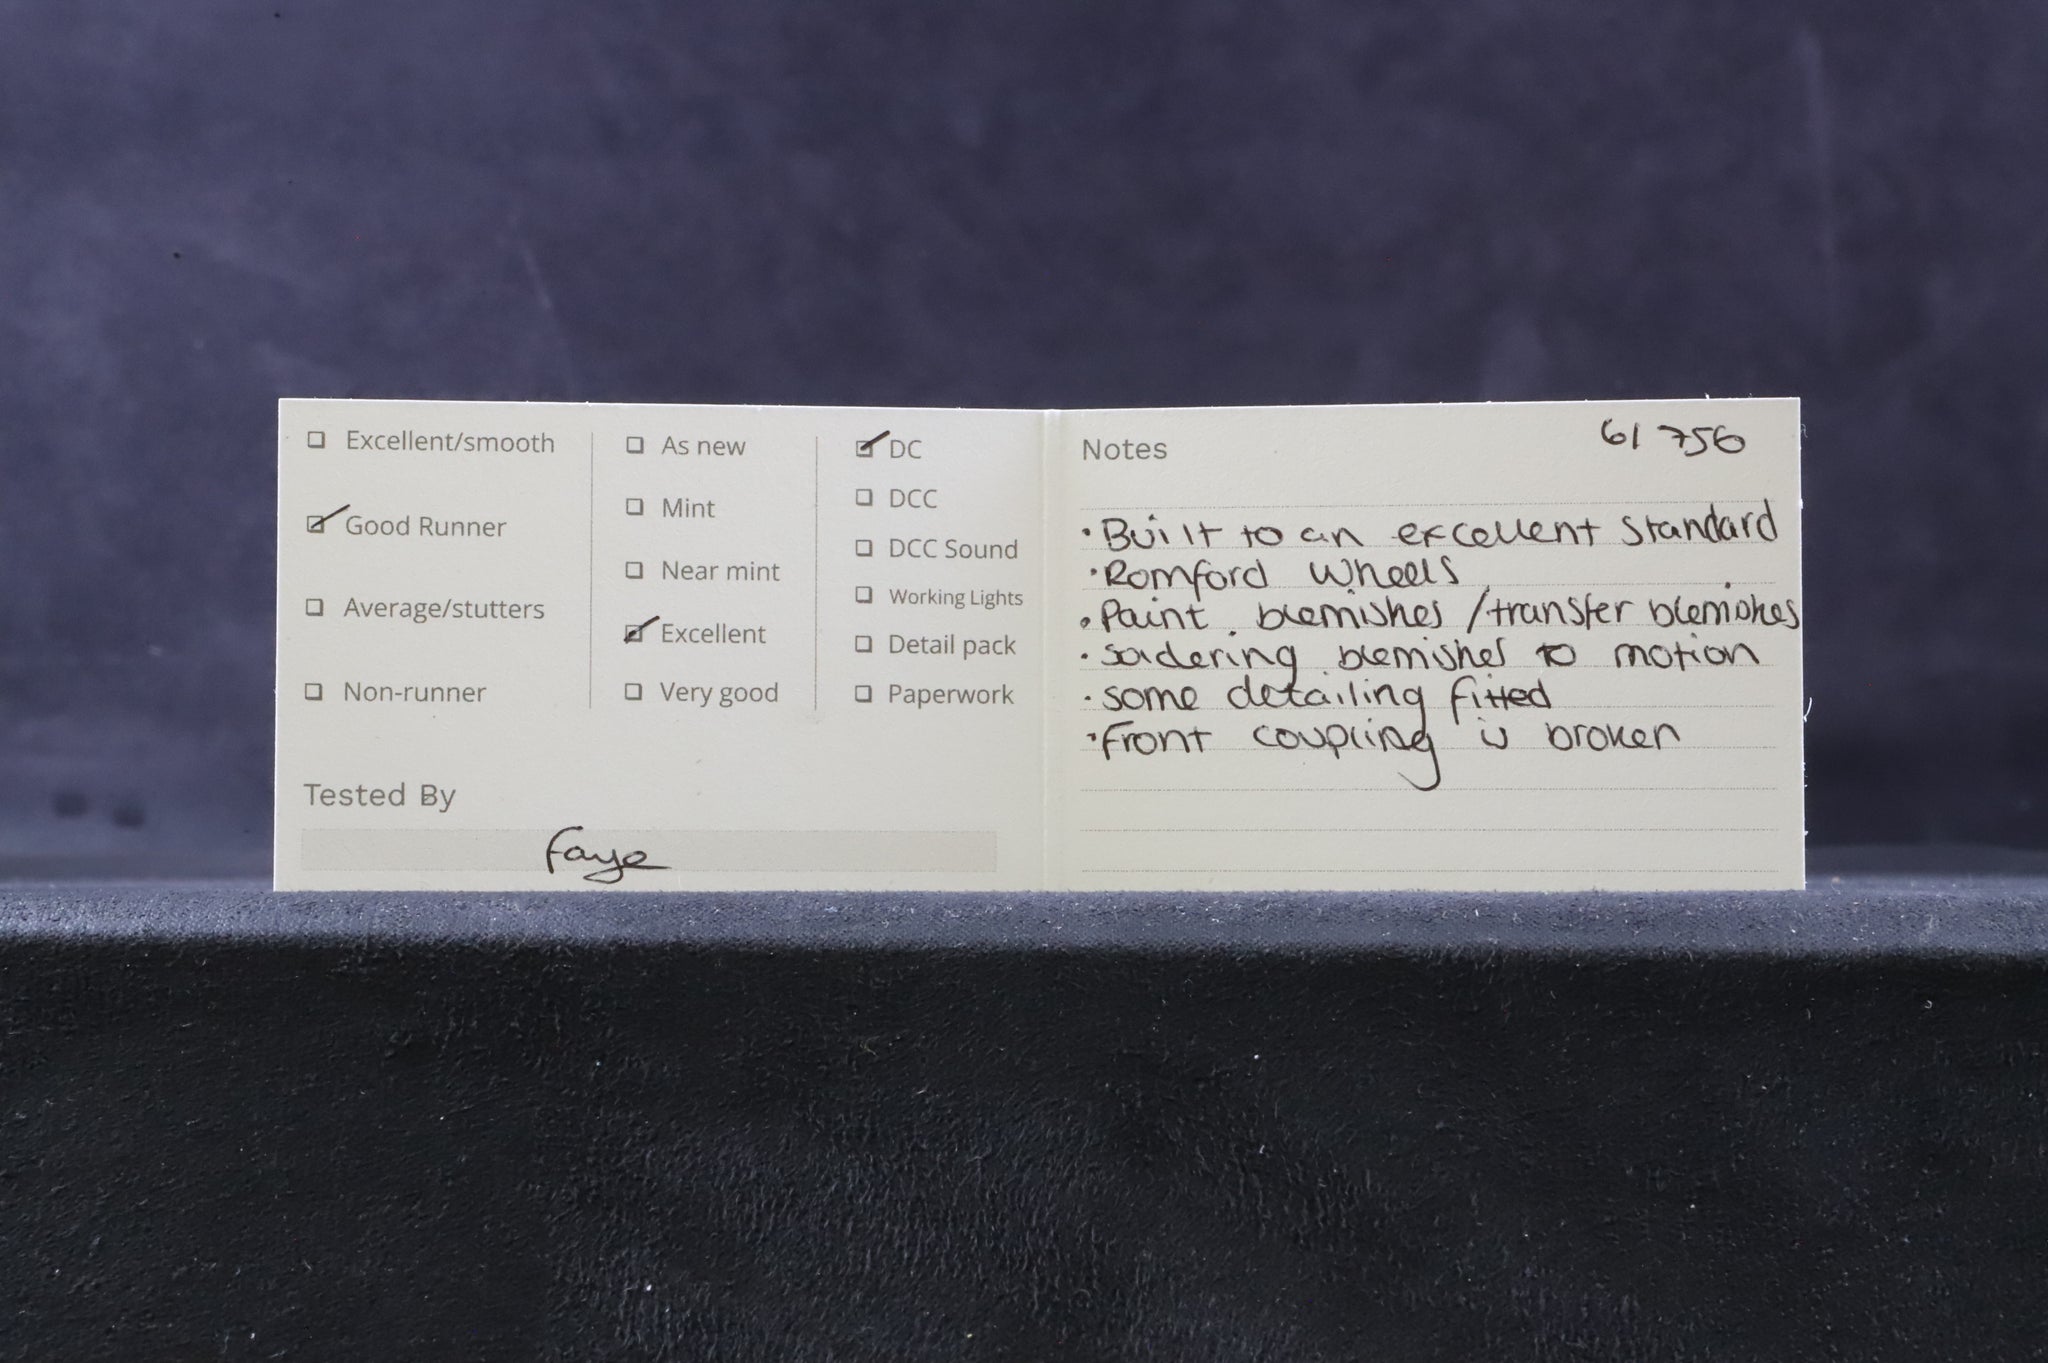 ☐ Excellent/smooth
☑ Good Runner
☐ Average/stutters
☐ Non-runner
☐ As new
☐ Mint
☐ Near mint
☑ Excellent
☐ Very good
☑ DC
☐ DCC
☐ DCC Sound
☐ Working Lights
☐ Detail pack
☐ Paperwork
Tested By
Faye
Notes
61756
• Built to an excellent standard
• Romford Wheels
• Paint blemishes / transfer blemishes
• soldering blemishes to motion
• some detailing fitted
• Front coupling is broken